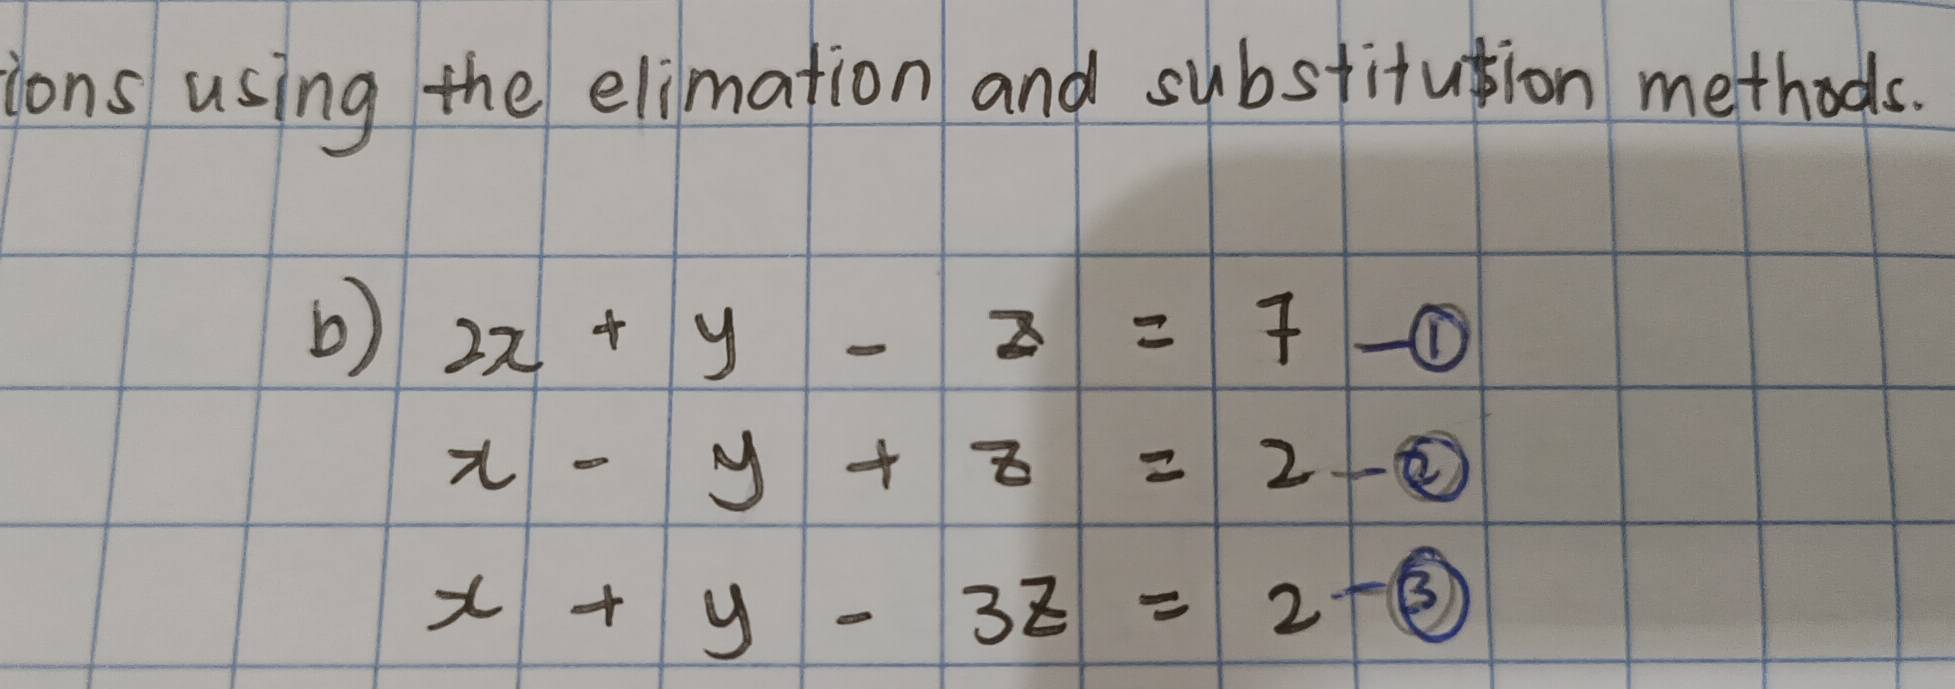 ions using the elimation and substitution methods.
b) 2x + y - z = 7 -①
x - y + z = 2 -②
x + y - 3z = 2 -③